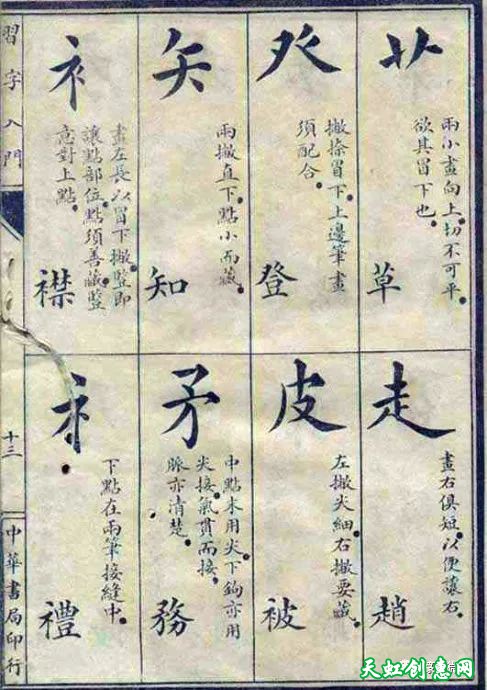 艹
兩小畫向上切不可平。
欲其冒下也。
草
癶
撇捺冒下。上邊筆畫
須配合。
登
矢
兩撇直下。點小而藏。
知
衤
畫左長以冒下撇。豎即
讓點部位。點須善藏。豎
意對上點。
襟
走
畫右俱短。以便讓右。
趙
皮
左撇尖細。右撇要藏。
被
矛
中點末用尖。下鉤亦用
尖接。氣貫而接。
脈亦清楚。
務
礻
下點在兩筆接縫中。
禮
習字入門
十三
中華書局印行
天虹创意网